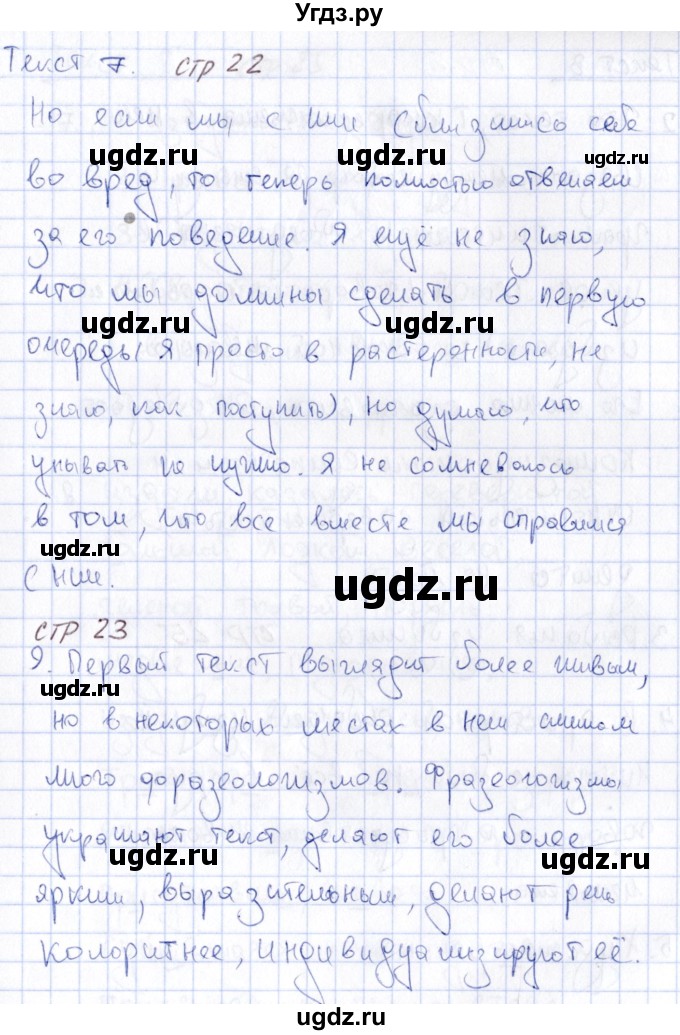 Угдз.ру
Текст 7. стр 22
Но если мы с ним сблизились себе
ugdz.ru ugdz.ru
во вред, то теперь полностью отвечаем
за его поведение. Я ещё не знаю,
ugdz.ru
что мы должны сделать в первую
ugdz.ru ugdz.ru
очередь(я просто в растерянности, не
знаю, как поступить), но думаю, что
ugdz.ru ugdz.ru
унывать не нужно. Я не сомневаюсь
в том, что все вместе мы справимся
ugdz.ru ugdz.ru
с ним.
стр 23
9. Первый текст выглядит более живым,
ugdz.ru ugdz.ru
но в некоторых местах в нем слишком
ugdz.ru
много форазеологизмов. Фразеологизмы
украшают текст, делают его более
ugdz.ru ugdz.ru
ярким, выразительным, делают речь
колоритнее, индивидуализируют её.
ugdz.ru ugdz.ru